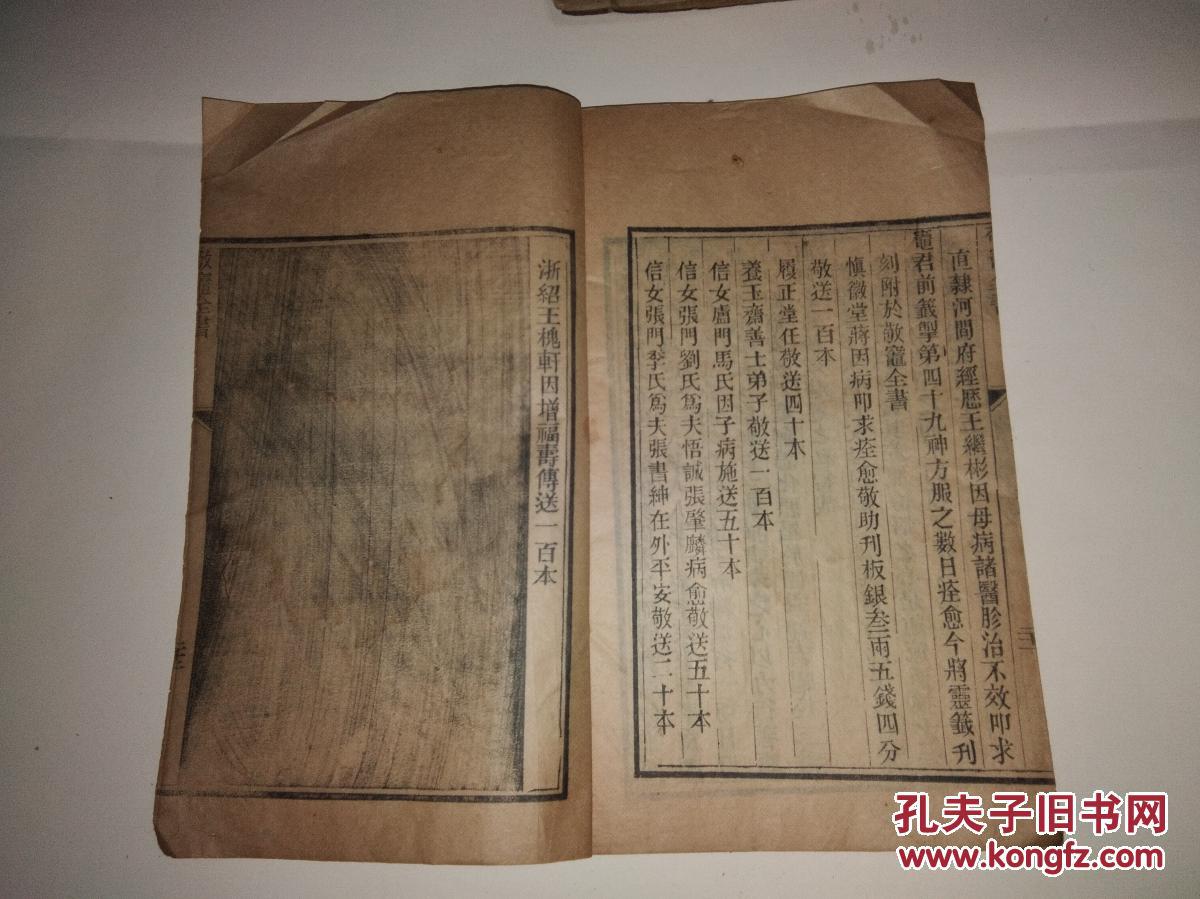 直隸河間府經歷王繼彬因母病諸醫胗治不效叩求
竈君前籤掣第四十九神方服之數日痊愈今將靈籤刊
刻附於敬竈全書
愼徽堂蔣因病叩求痊愈敬助刊板銀叁兩五錢四分
敬送一百本
履正堂任敬送四十本
養玉齋善士弟子敬送一百本
信女盧門馬氏因子病施送五十本
信女張門劉氏爲夫悟誠張肇麟病愈敬送五十本
信女張門李氏爲夫張書紳在外平安敬送二十本
浙紹王槐軒因增福壽傳送一百本
孔夫子旧书网
www.kongfz.com